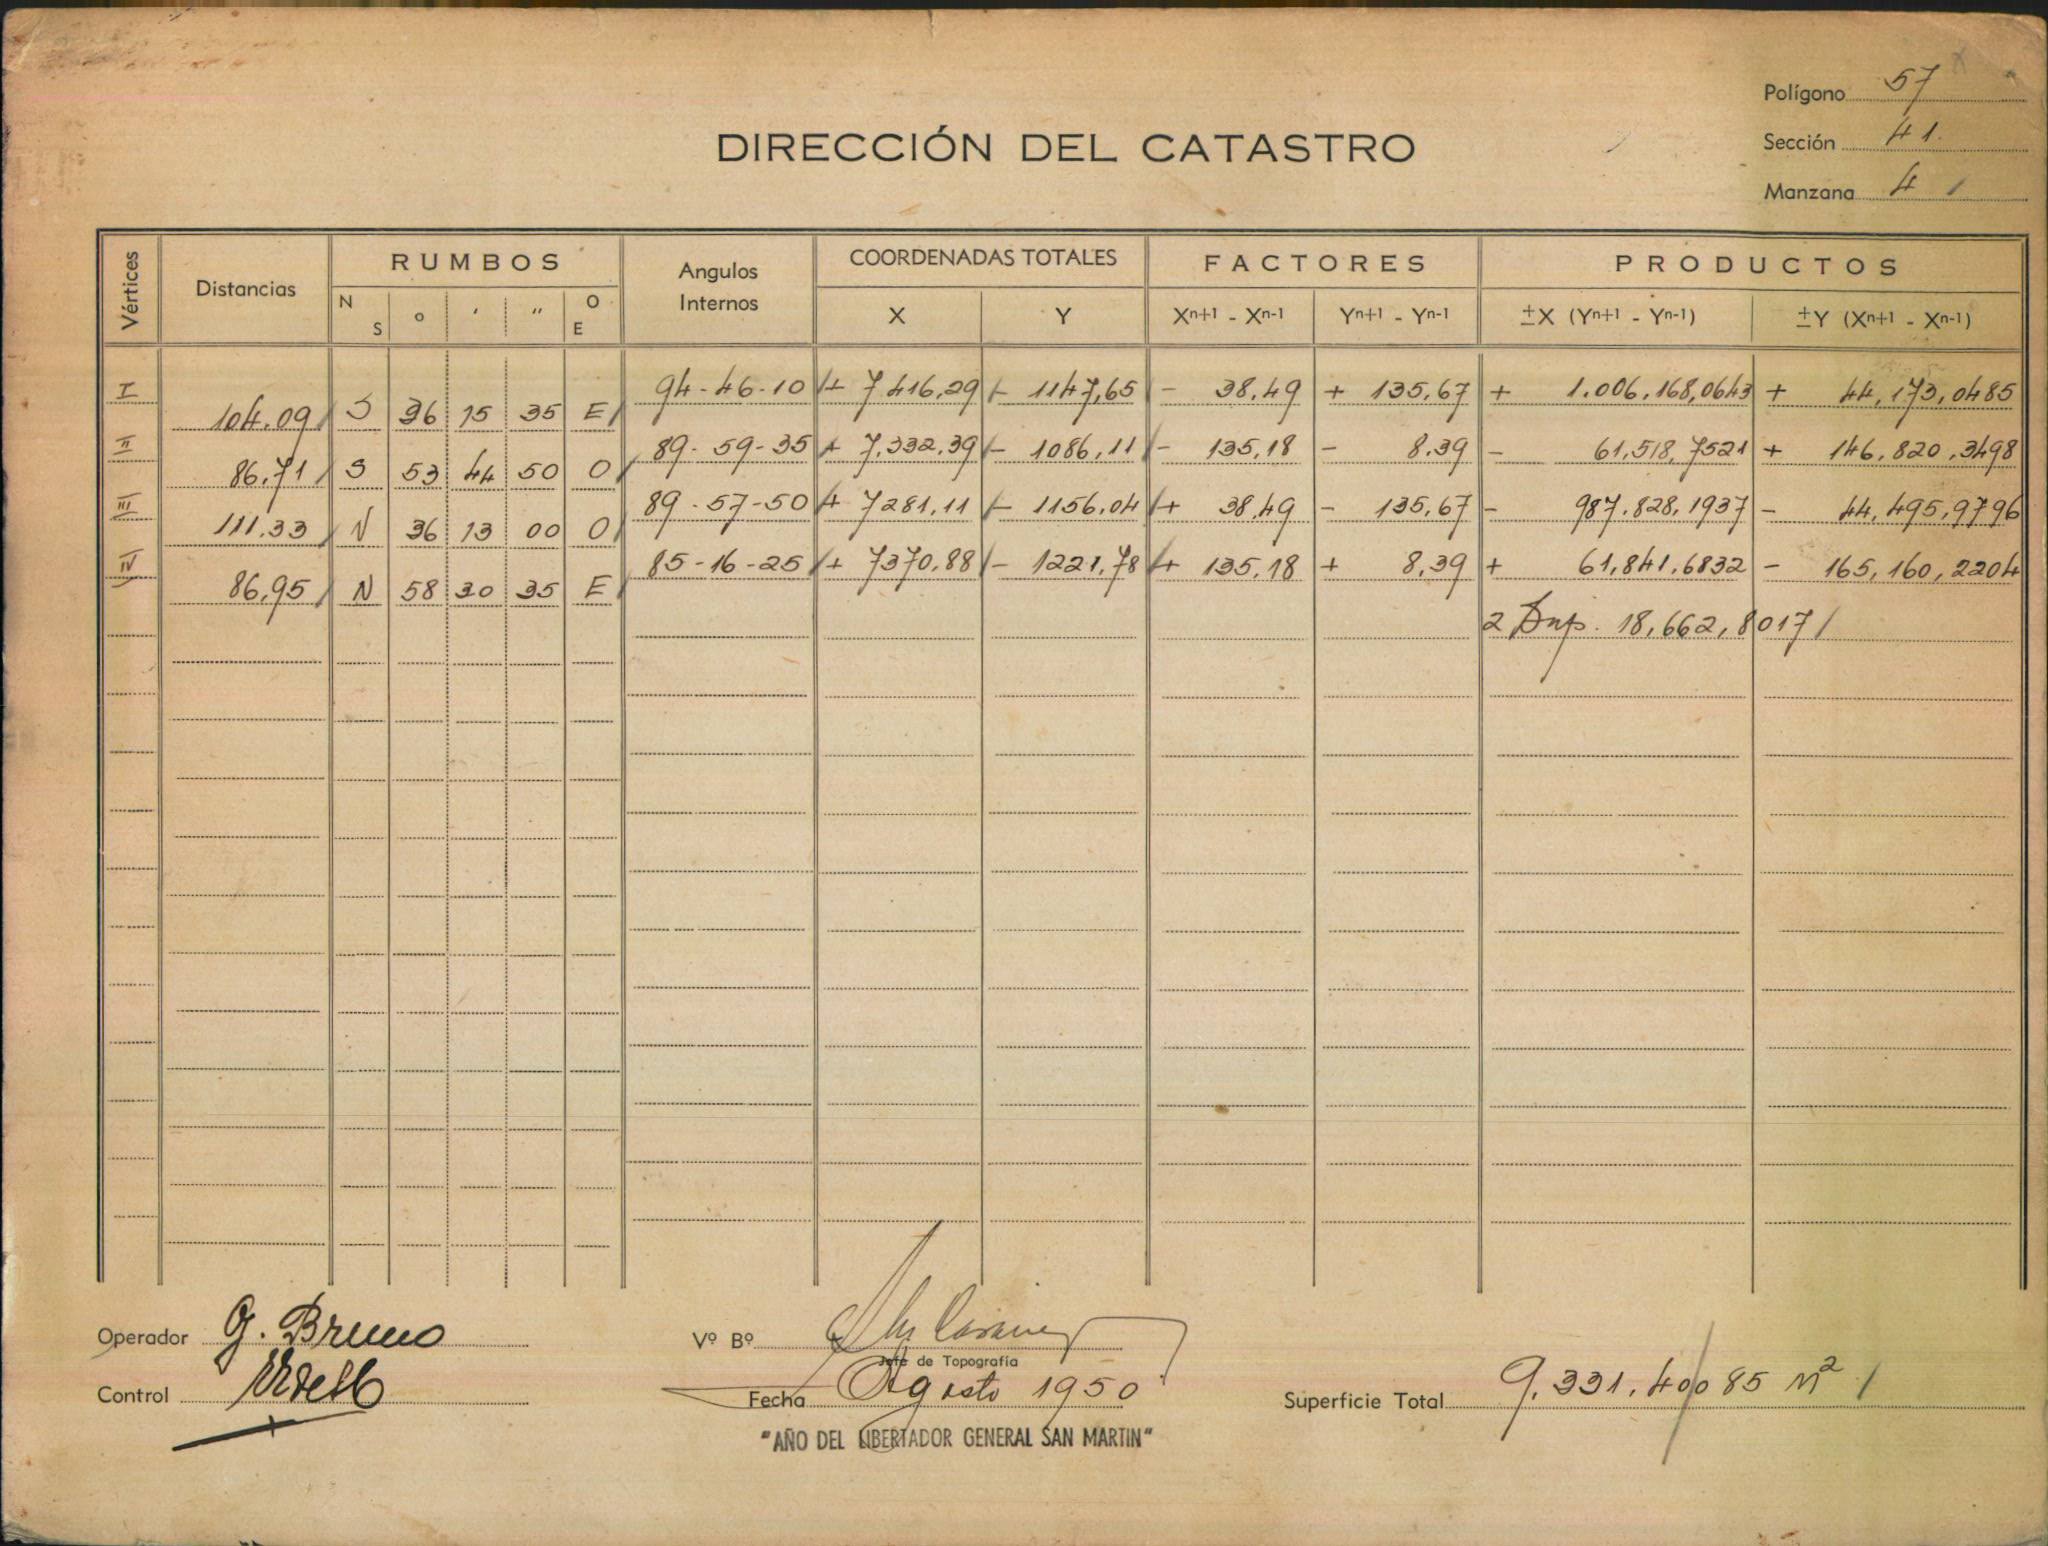 Polígono 57
DIRECCIÓN DEL CATASTRO
Sección 41.
Manzana 4
Vértices Distancias RUMBOS Angulos Internos COORDENADAS TOTALES FACTORES PRODUCTOS
N S o ' " O E X Y Xn+1 - Xn-1 Yn+1 - Yn-1 ±X (Yn+1 - Yn-1) ±Y (Xn+1 - Xn-1)
I 94-46-10 + 7,416,29 - 1147,65 - 38,49 + 135,67 + 1.006,168,0643 + 44,173,0485
104.09 S 36 15 35 E
II 89-59-35 + 7,332,39 - 1086,11 - 135,18 - 8,39 - 61,518,7521 + 146,820,3498
86,71 S 53 44 50 O
III 89-57-50 + 7281,11 - 1156,04 + 38,49 - 135,67 - 987.828,1937 - 44,495,9796
111.33 N 36 13 00 O
IV 85-16-25 + 7370,88 - 1221,78 + 135,18 + 8,39 + 61,841,6832 - 165,160,2204
86,95 N 58 30 35 E
2 Sup. 18,662,8017
Operador G. Bruno
Vº Bº
Jefe de Topografía
Control
Fecha Agosto 1950
Superficie Total 9.331.40085 M2
"AÑO DEL LIBERTADOR GENERAL SAN MARTIN"